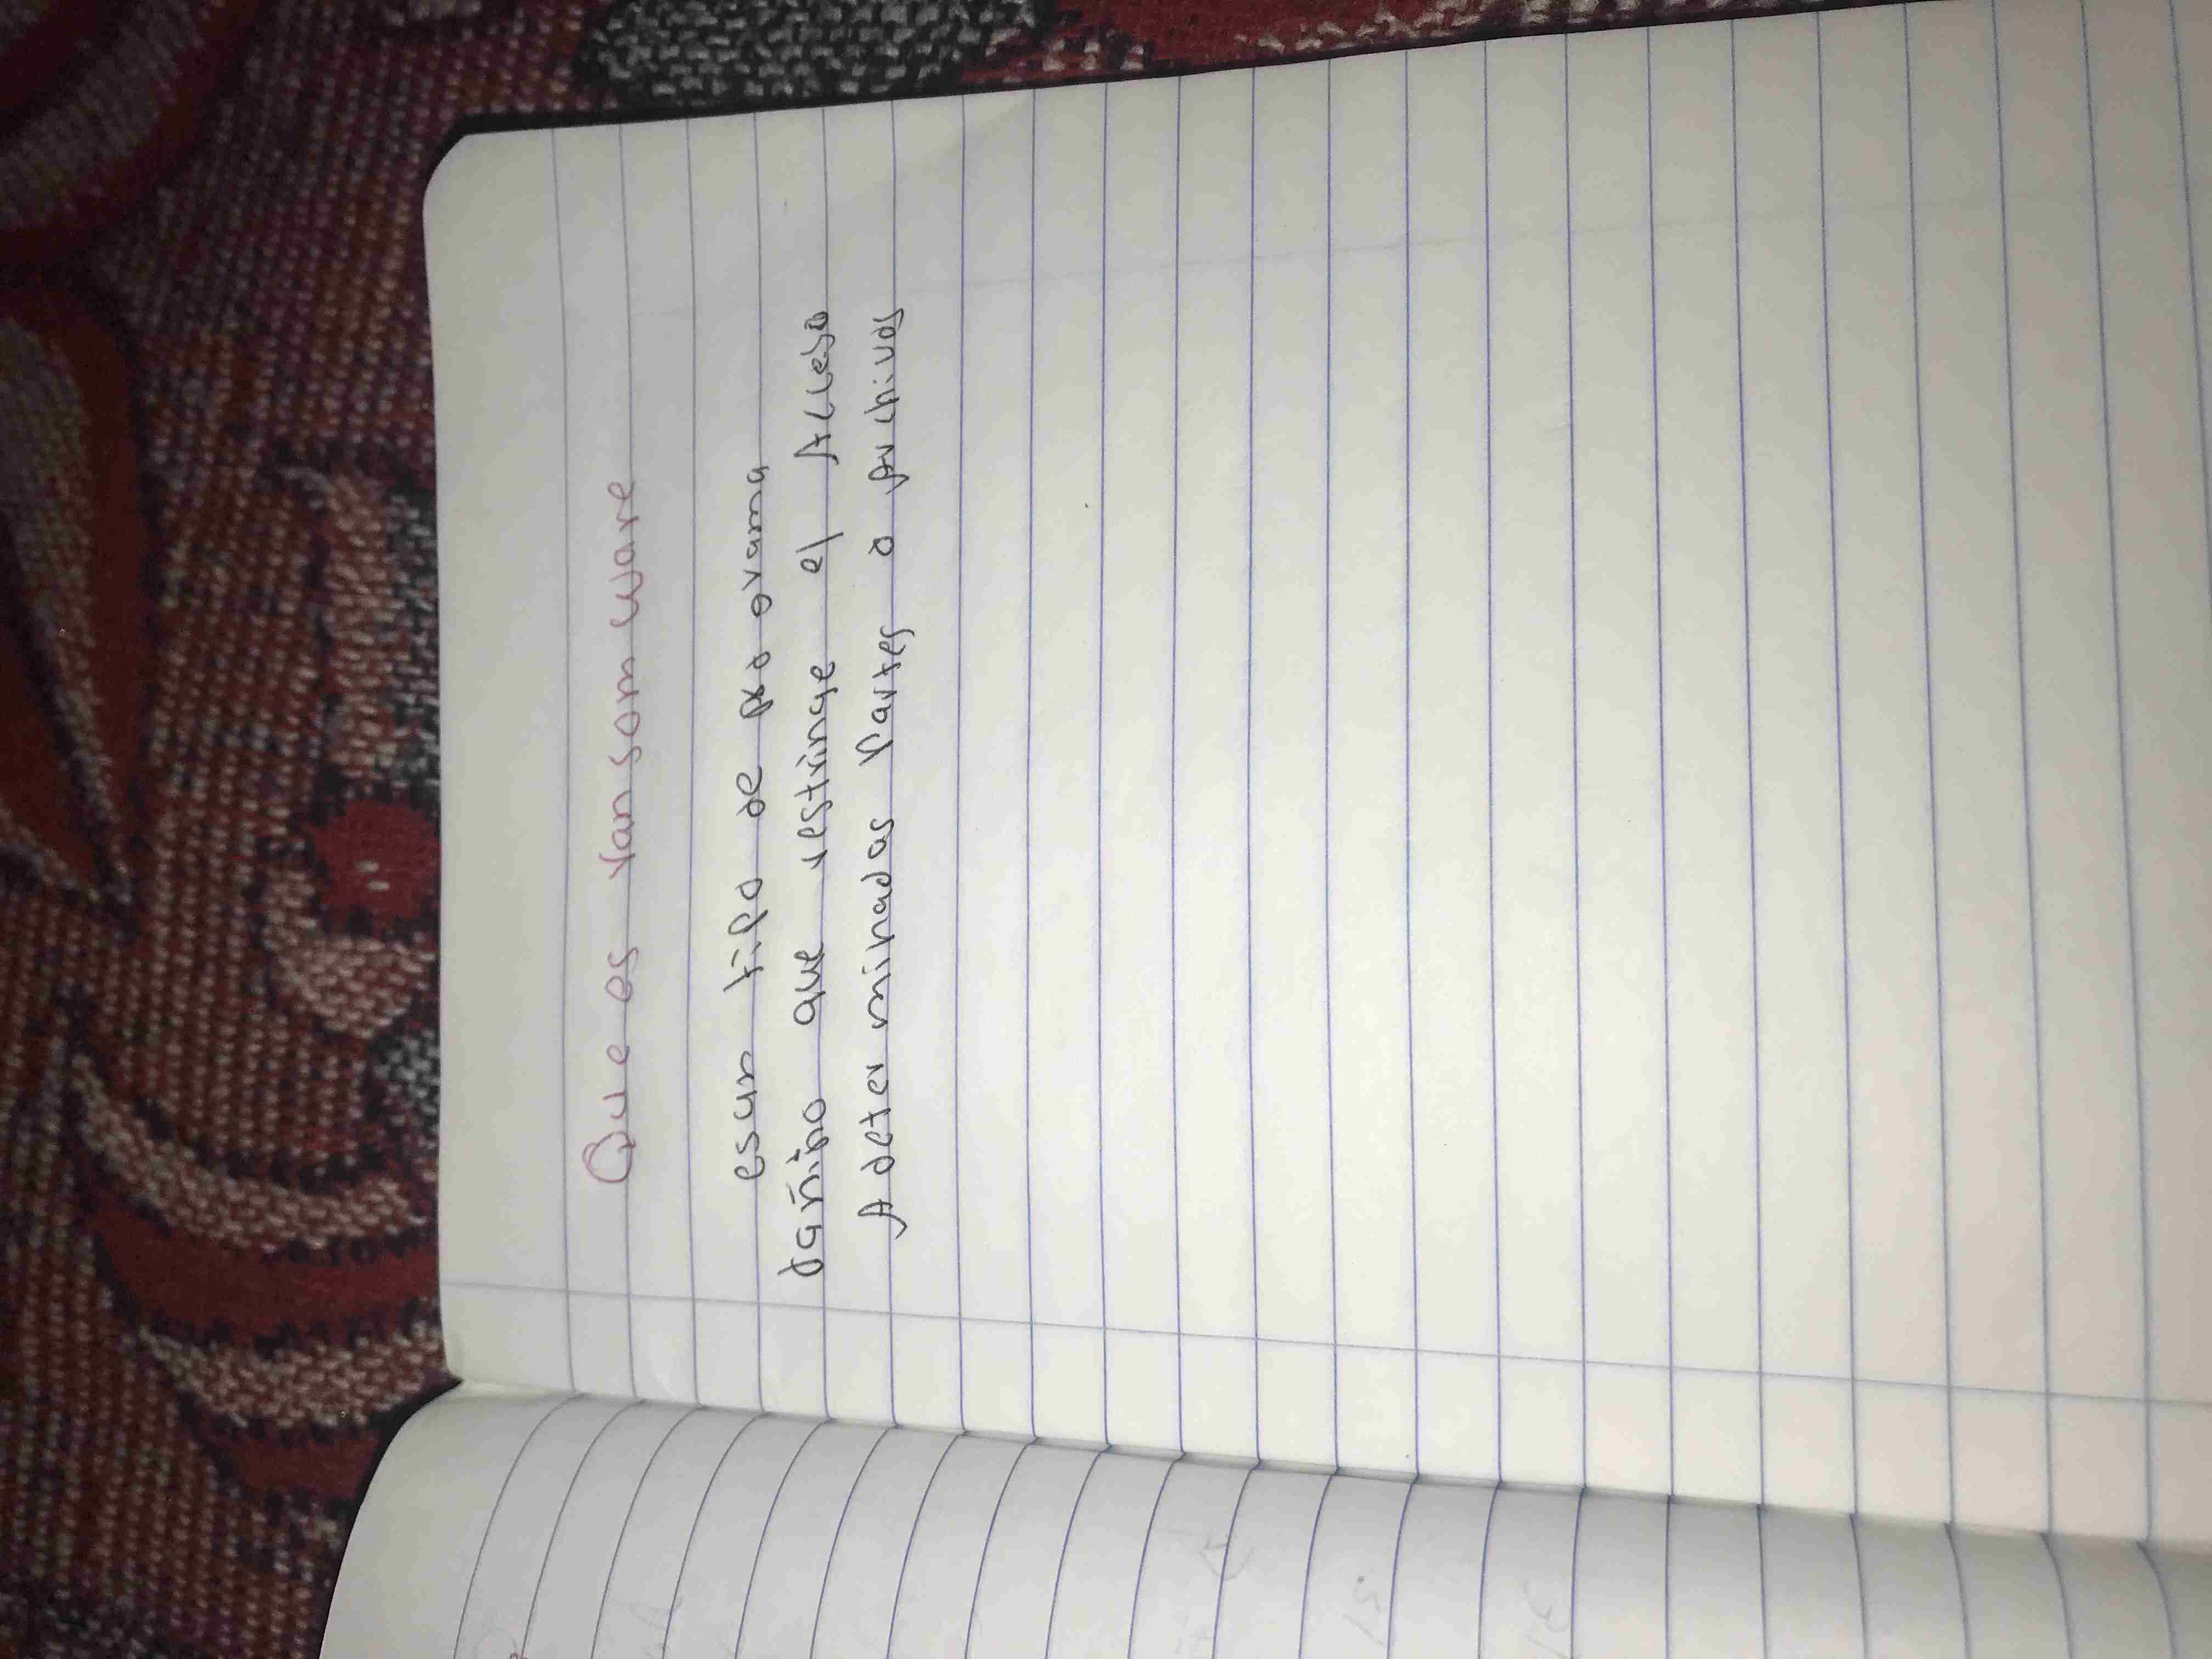 Que es ransom ware
esun tipo de pro grama
dañino que restringe el Acceso
A deter minadas Partes o Archivos